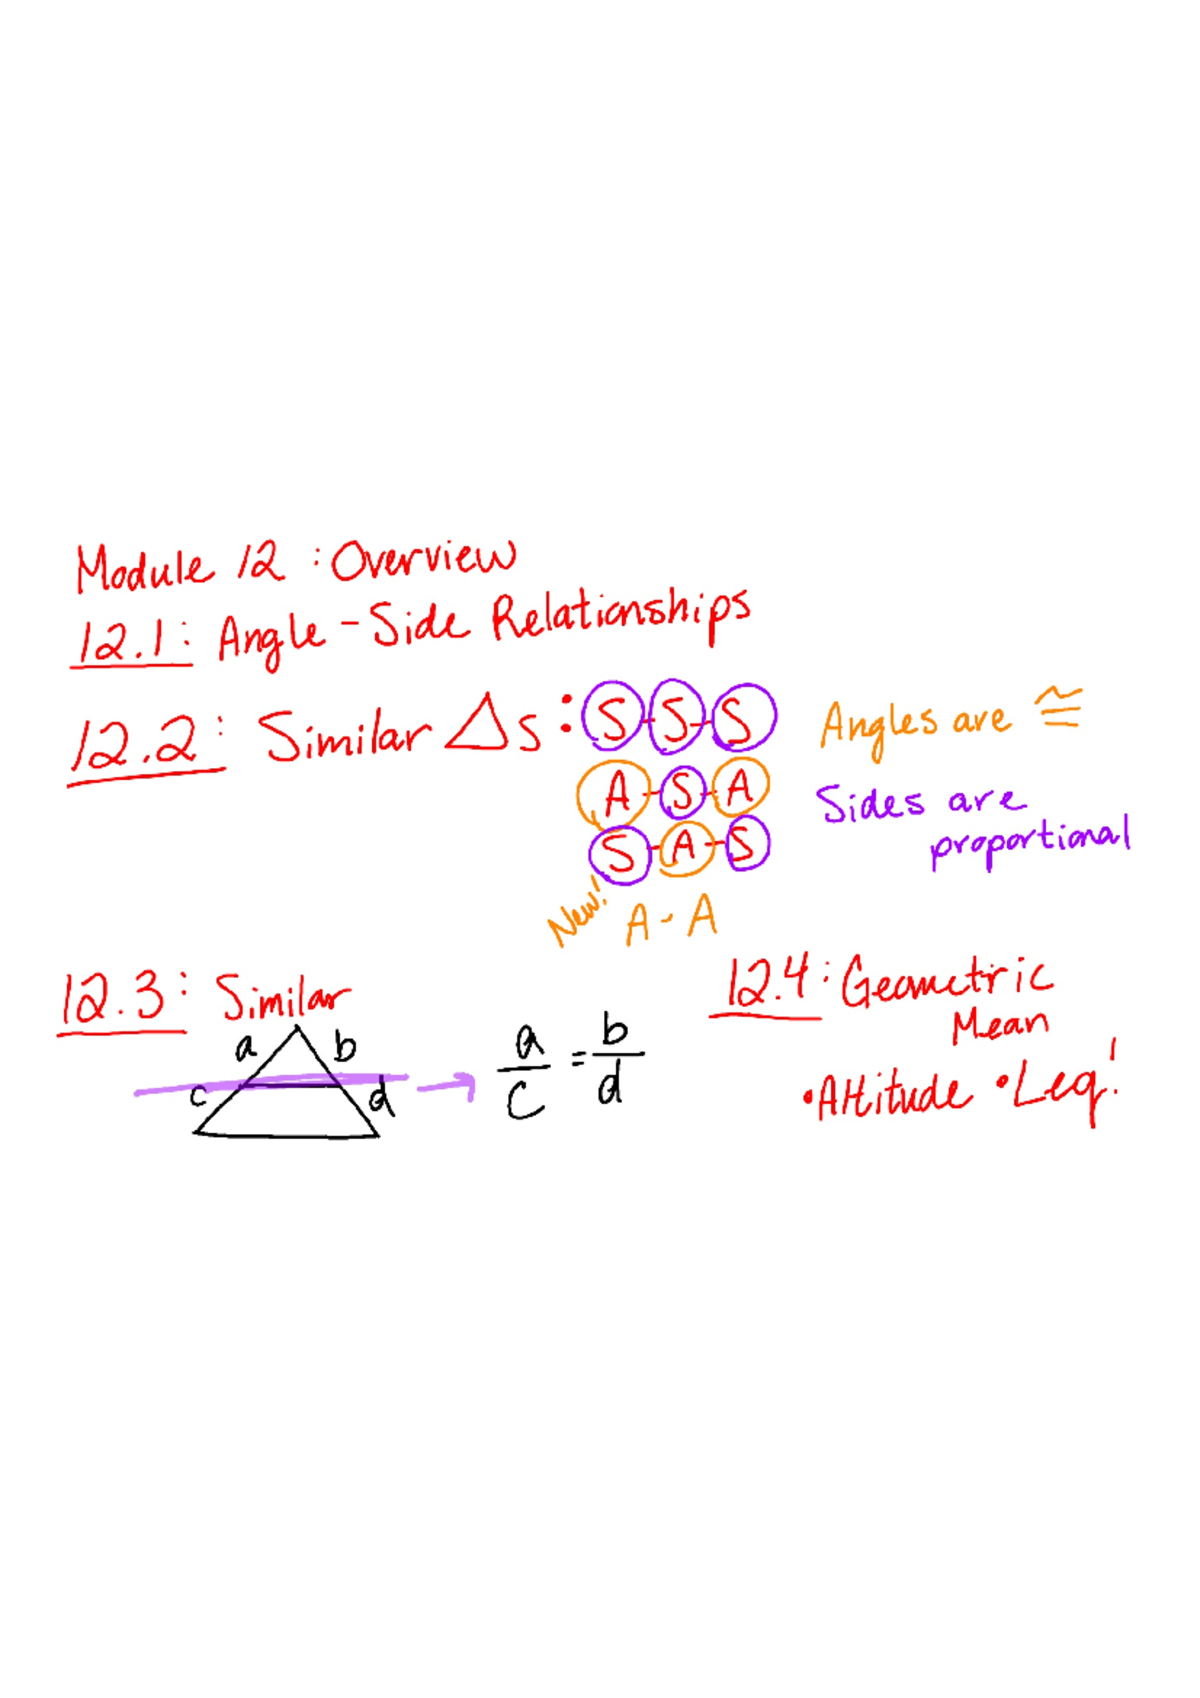 Module 12 : Overview
12.1: Angle-Side Relationships
12.2: Similar △s : S-S-S
A-S-A
S-A-S
New! A-A
Angles are ≅
Sides are
proportional
12.3: Similar
a b
c d
→ a/c = b/d
12.4: Geometric
Mean
•Altitude •Leg!